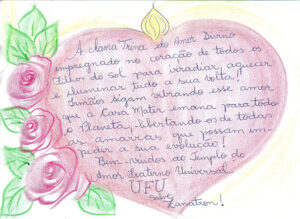 A Chama Trina do Amor Divino
empregnado no coração de todos os
Filhos do sol para irradiar, aquecer
e iluminar tudo a sua volta!
Irmãos sigam, vibrando esse amor
que a Casa Mater emana para todo
o Planeta, libertando-os de todas
as amarras que possam im-
pedir a sua evolução!
Bem-vindos ao Templo do
Amor Fraterno Universal
UFU
Salve